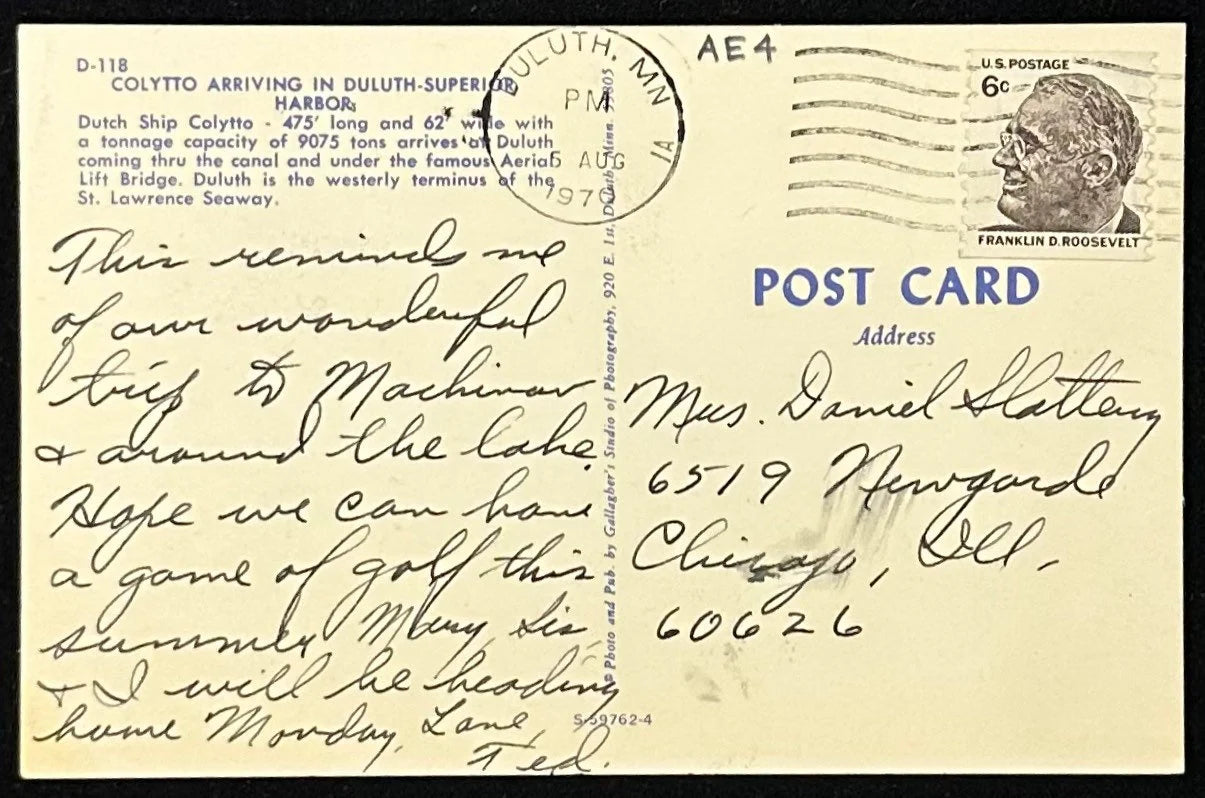 D-118
COLYTTO ARRIVING IN DULUTH-SUPERIOR
HARBOR
Dutch Ship Colytto - 475' long and 62' wide with
a tonnage capacity of 9075 tons arrives at Duluth
coming thru the canal and under the famous Aerial
Lift Bridge. Duluth is the westerly terminus of the
St. Lawrence Seaway.
This reminds me
of our wonderful
trip to Machinaw
& around the lake.
Hope we can have
a game of golf this
summer. Mary, Sis,
& I will be heading
home Monday. Love,
Ted.
DULUTH, MN
PM
5 AUG
1970
1A
© Photo and Pub. by Gallagher's Studio of Photography, 920 E. 1st, Duluth, Minn. 55805
S-59762-4
AE4
U.S. POSTAGE
6c
FRANKLIN D. ROOSEVELT
POST CARD
Address
Mrs. Daniel Slattery
6519 Newgarde
Chicago, Ill.
60626